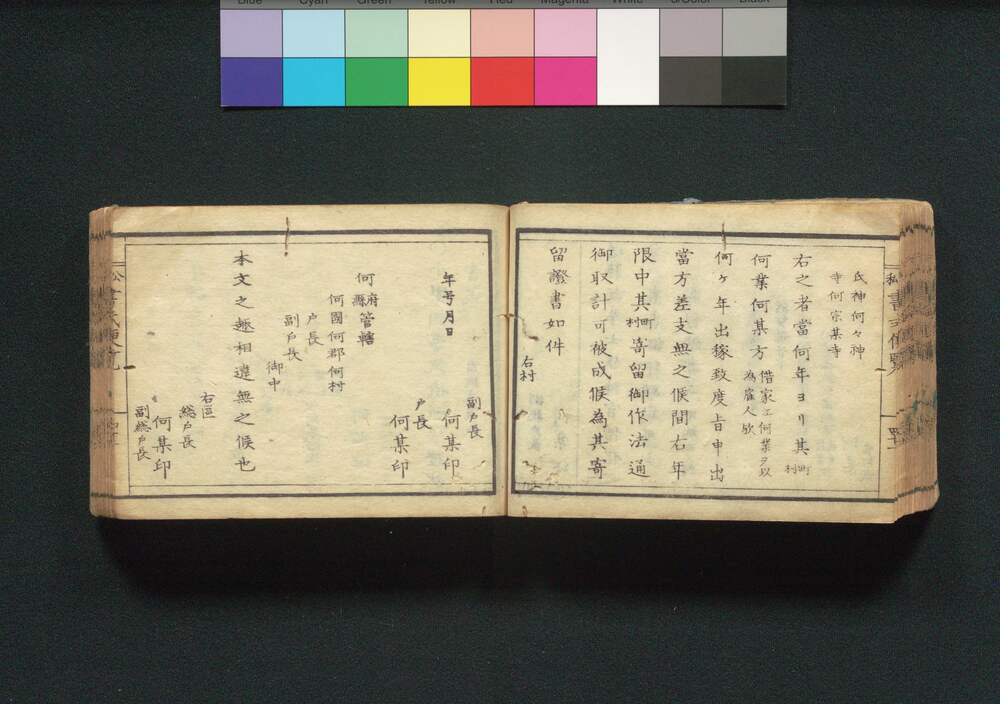 Blue Cyan Green Yellow Red Magenta White 3/Color Black
氏神何々神
寺何宗某寺
右之者當何年ヨリ其町村
何業何某方借家エ何業ヲ以為雇人欤
何ヶ年出稼致度旨申出
當方差支無之候間右年
限中其町村寄留御作法通
御取計可被成候為其寄
留證書如件
右村
副戸長
何某印
年号月日
戸長
何某印
何府縣管轄
何國何郡何村
戸長
副戸長
御中
本文之趣相違無之候也
右區
総戸長
何某印
副総戸長